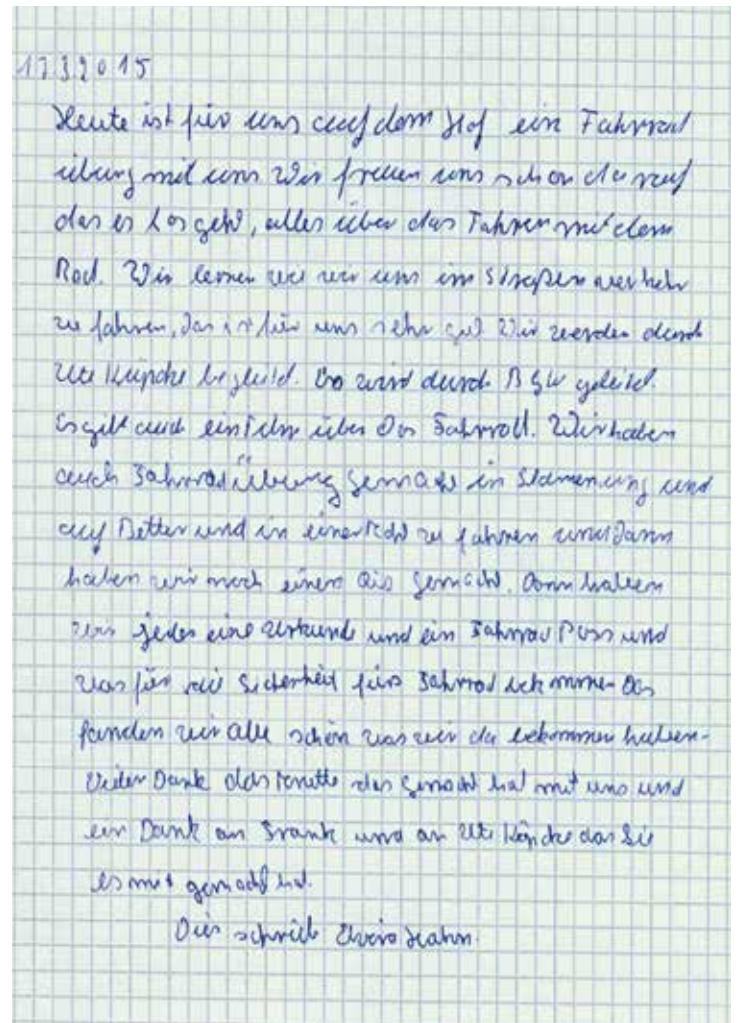 17.3.2015
Heute ist für uns auf dem Hof ein Fahrrad
übung mit uns Wir freuen uns schon darauf
das es Los geht, alles über das Fahren mit dem
Rad. Wir lernen wie wir uns im Straßenverkehr
zu fahren, das ist für uns sehr gut Wir werden durch
Ute Köpcke begleitet. Es wird durch BGW geleitet.
Es gibt auch ein über Das Fahrrad. Wir haben
auch Fahrradübung gemacht in und
auf Bretter und in einer Acht zu fahren und Dann
haben wir noch einen gemacht. Dann haben
wir jeder eine Urkunde und ein Fahrrad Pass und
was für die Sicherheit fürs Fahrrad bekommen Das
fanden wir alle schön was wir da bekommen haben.
Vielen Dank das das gemacht hat mit uns und
ein Dank an Frank und an Ute Köpcke das Sie
es mit gemacht hat.
Dies schrieb Hahn.